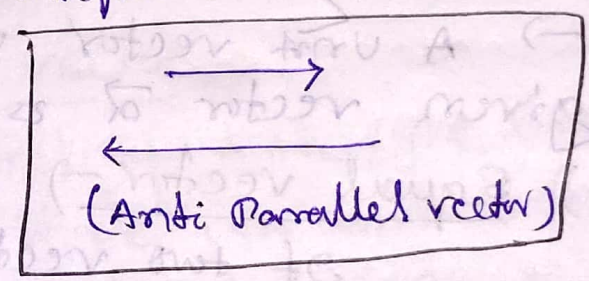 (Anti Parallel vector)